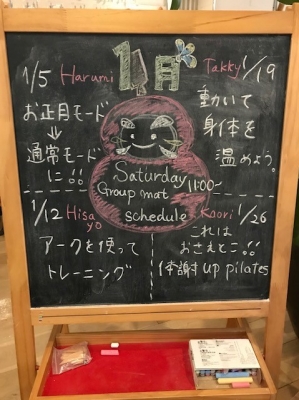 1月
1/5 Harumi
お正月モード
↓
通常モード
に!!
Takky 1/19
動いて
身体を
温めよう。
Saturday
Group mat 11:00~
schedule
1/12 Hisayo
アークを使って
トレーニング
Kaori 1/26
これは
おさえとこ!!
代謝up pilates